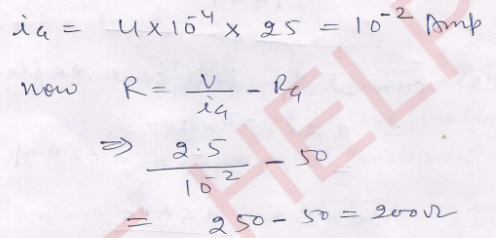 iG = 4×10⁻⁴ × 25 = 10⁻² Amp
now R = V/iG - RG
⇒ 2.5/10⁻² - 50
= 250 - 50 = 200Ω
HELP